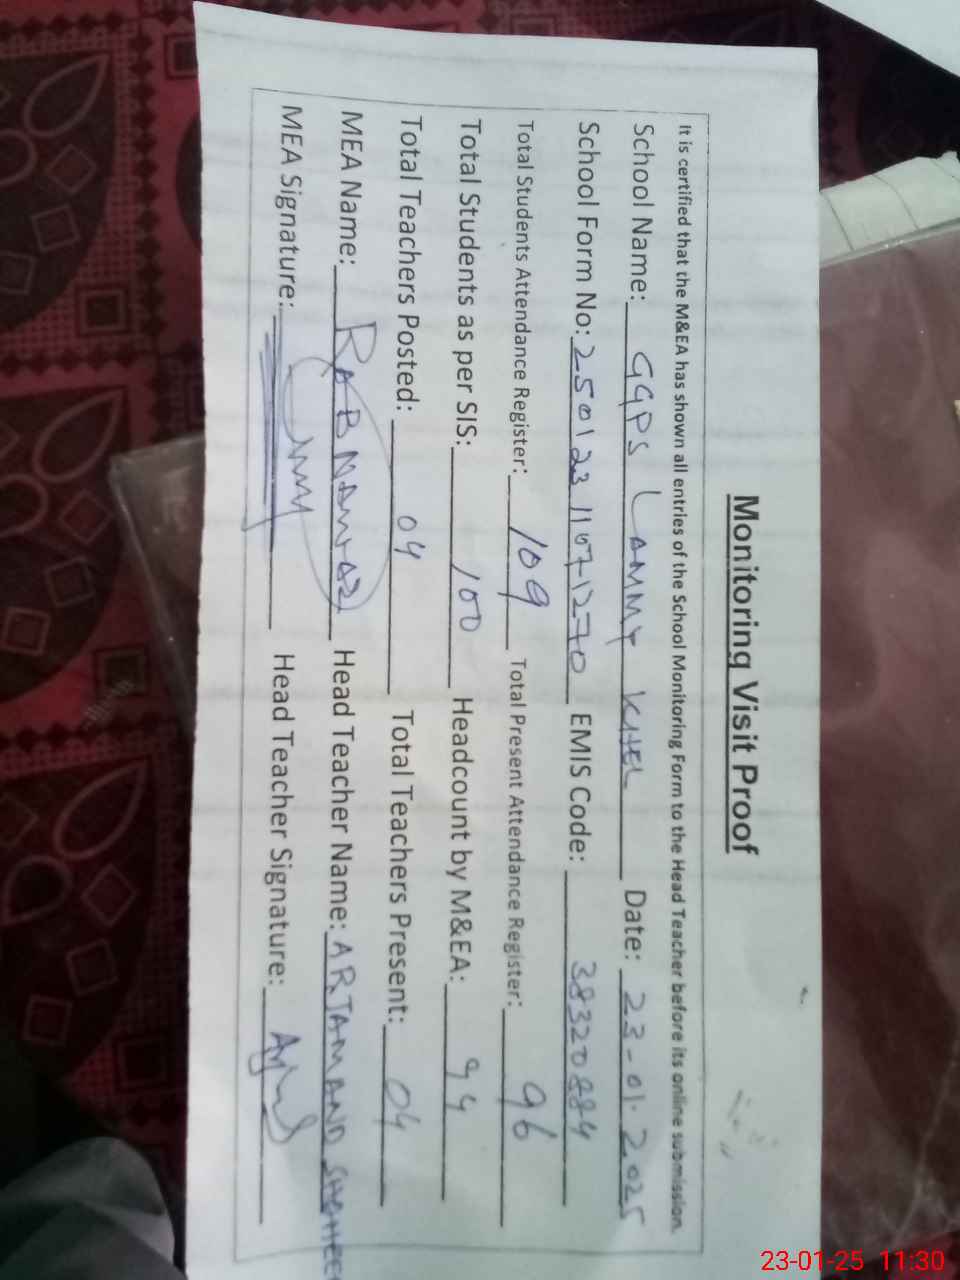 Monitoring Visit Proof
It is certified that the M&EA has shown all entries of the School Monitoring Form to the Head Teacher before its online submission.
School Name: GGPS LAMMY KHEL Date: 23-01-2025
School Form No: 2501231107-1270 EMIS Code: 38320884
Total Students Attendance Register: 109 Total Present Attendance Register: 96
Total Students as per SIS: 100 Headcount by M&EA: 94
Total Teachers Posted: 04 Total Teachers Present: 04
MEA Name: RAB NAWAZ Head Teacher Name: ARJAMAND SHAHEE
MEA Signature: Head Teacher Signature:
23-01-25 11:30